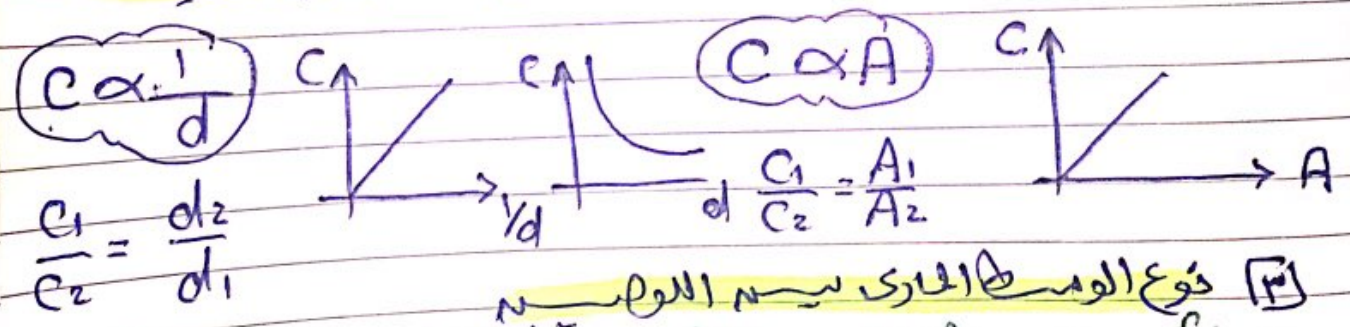 C ∝ 1/d
C
1/d
C
d
C ∝ A
C
A
C₁/C₂ = d₂/d₁
C₁/C₂ = A₁/A₂
[٣] نوع الوسط المادى بين اللوحين